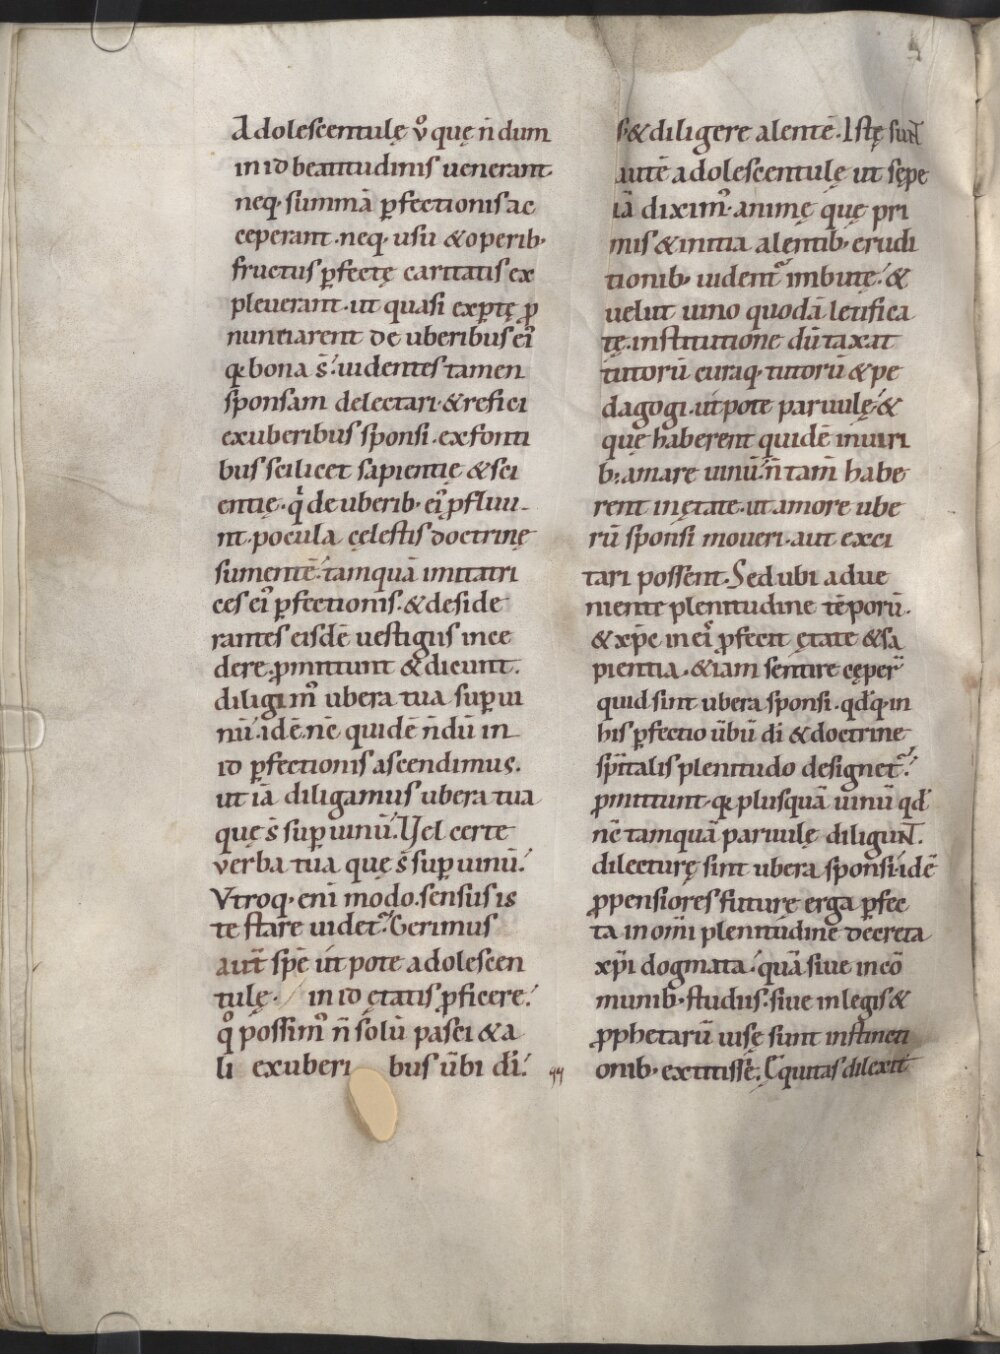 Adolescentulę v̊ quę n̄ dum
in id beatitudinis uenerant.
neq; summā ꝑfectionis ac
ceperant. neq; usu & operib;
fructus ꝑfectę caritatis ex
pleuerant. ut quasi exꝑtę ꝓ
nuntiarent de uberibus ei᷒
qꝛ bona s̄. uidentes tamen
sponsam delectari. & refici
ex uberibus sponsi. ex fonti
bus scilicet sapientię & sci
entię. qͥ de uberib; ei᷒ ꝓfluu-
nt. pocula cęlestis doctrinę
sumentē. tamquā imitatri
ces ei᷒ ꝑfectionis. & deside
rantes eisdē uestigiis ince
dere. ꝓmittunt & dicunt.
diligim᷒ ubera tua suꝑ ui
nū. id ē. nc̄ quidē n̄dū in
id ꝑfectionis ascendimus.
ut iā diligamus ubera tua
quę s̄ suꝑ uinū. Vel certe
verba tua quę s̄ suꝑ uinū.
Vtroq; eni modo. sensus is
te stare uidet᷑. Gerimus
aūt spē utpote adolescen
tulę. in id ętatis ꝓficere.
qͦ possim᷒ n̄ solū pasci & a
li ex uberibus ūbi dī.
s. & diligere alentē. Istę sunt
autē adolescentulę ut sępe
iā dixim᷒. animę quę pri
mis & initia alentib; erudi
tionib; uident᷑ imbutę. &
uelut uino quodā letifica
tę. institutione dūtaxat
tutorū curaq; tutorū & pe
dagogi. utpote paruulę. &
quę haberent quidē in uiri
b; amare uinū. n̄ tam̄ habe
rent in ętate. ut amore ube
rū sponsi moueri. aut exci
tari possent. Sed ubi adue
niente plenitudine tēporū.
& xp̄c in ei᷒ ꝓfecit ętate & sa
pientia. & iam sentire cęper̄
quid sint ubera sponsi. qd̄q; in
his ꝑfectio ūbū dī & doctrine
sp̄italis plenitudo designet᷑.
ꝓmittunt. qꝛ plusquā uinū qd̄
nc̄ tamquā paruulę diligunt.
dilecturę sint ubera sponsi. id ē
ꝓpensiores future erga ꝑfec
ta in om̄i plenitudine decreta
xp̄i dogmata. quā siue in cō
munib; studiis. siue in legis &
ꝓphetarū uisę sunt instituti
onib; extitisse. Ęquitas dilexit